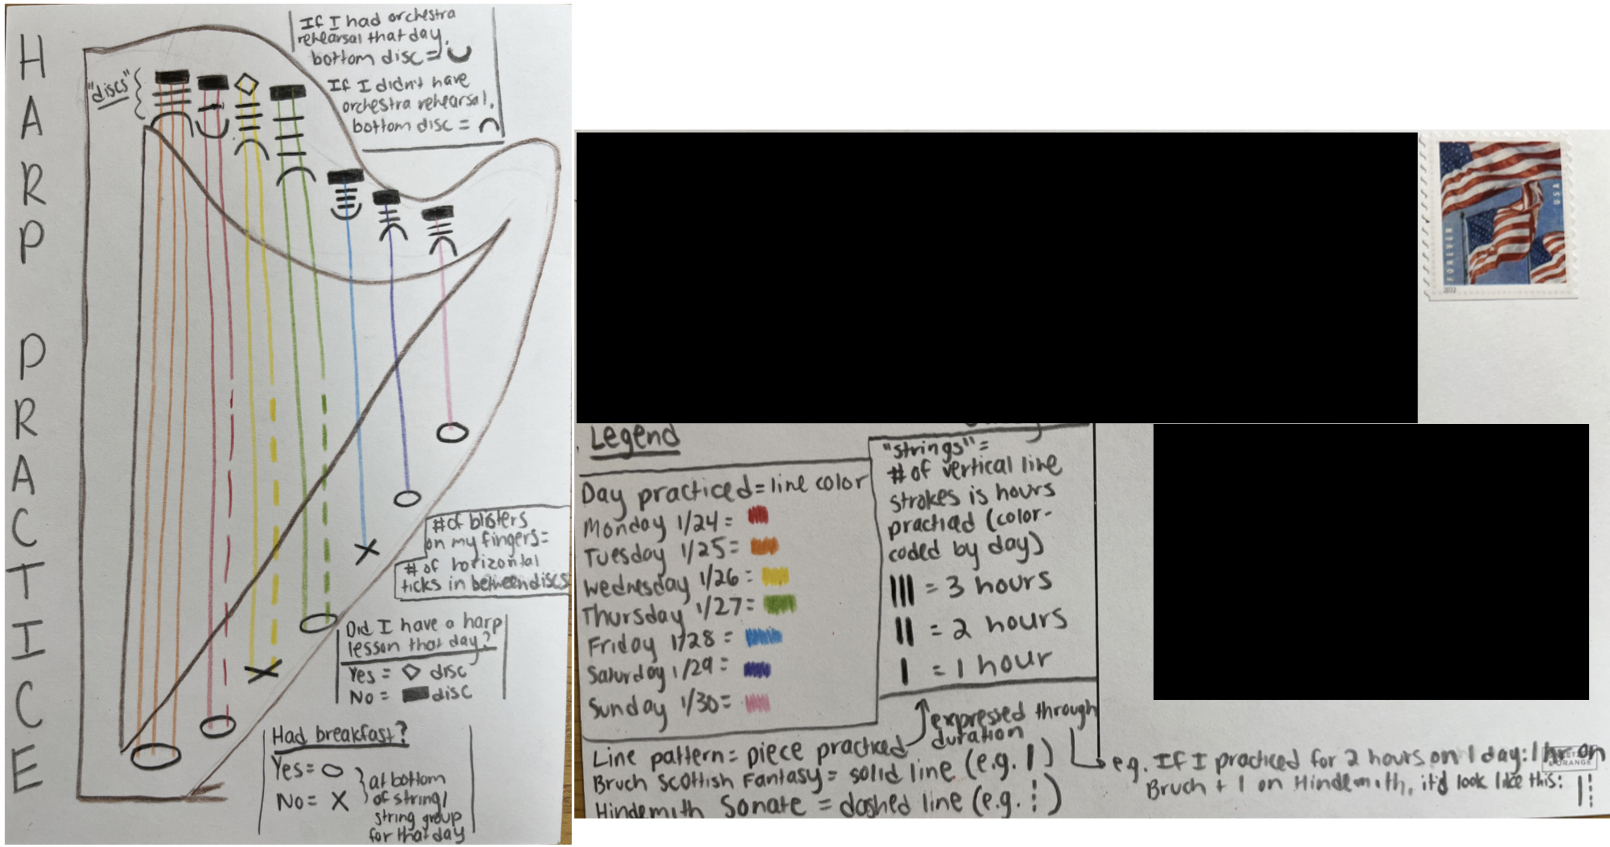 HARP PRACTICE
If I had orchestra
rehearsal that day,
bottom disc =
If I didn't have
orchestra rehearsal,
bottom disc =
"discs"
# of blisters
on my fingers =
# of horizontal
ticks in between discs
Did I have a harp
lesson that day?
Yes = disc
No = disc
Had breakfast?
Yes = O
No = X
at bottom
of string/
string group
for that day
FOREVER
USA
2022
Legend
Day practiced = line color
Monday 1/24 =
Tuesday 1/25 =
Wednesday 1/26 =
Thursday 1/27 =
Friday 1/28 =
Saturday 1/29 =
Sunday 1/30 =
"strings" =
# of vertical line
strokes is hours
practied (color-
coded by day)
||| = 3 hours
|| = 2 hours
| = 1 hour
expressed through
duration
Line pattern = piece practiced
Bruch Scottish Fantasy = solid line (e.g. |)
Hindemith Sonate = dashed line (e.g. ¦)
e.g. If I practiced for 2 hours on 1 day: 1 hr on
Bruch + 1 on Hindemith, it'd look like this: |¦